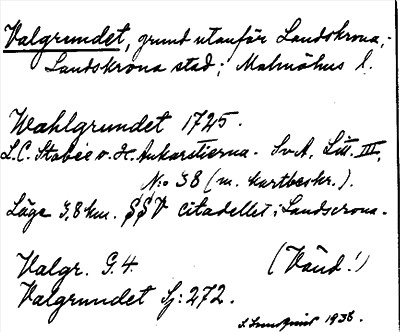 Valgrundet, grund utanför Landskrona,
Landskrona stad; Malmöhus l.
Wahlgrundet 1725.
L.C. Stobée v. H. Ankarstierna. SvA, Litt. III,
N:o 38 (m. kartbeskr.).
Läge 3,8 km. SSV citadellet i Landscrona.
Valgr. G. 4. (Vänd!)
Valgrundet Sj: 272.
1938.